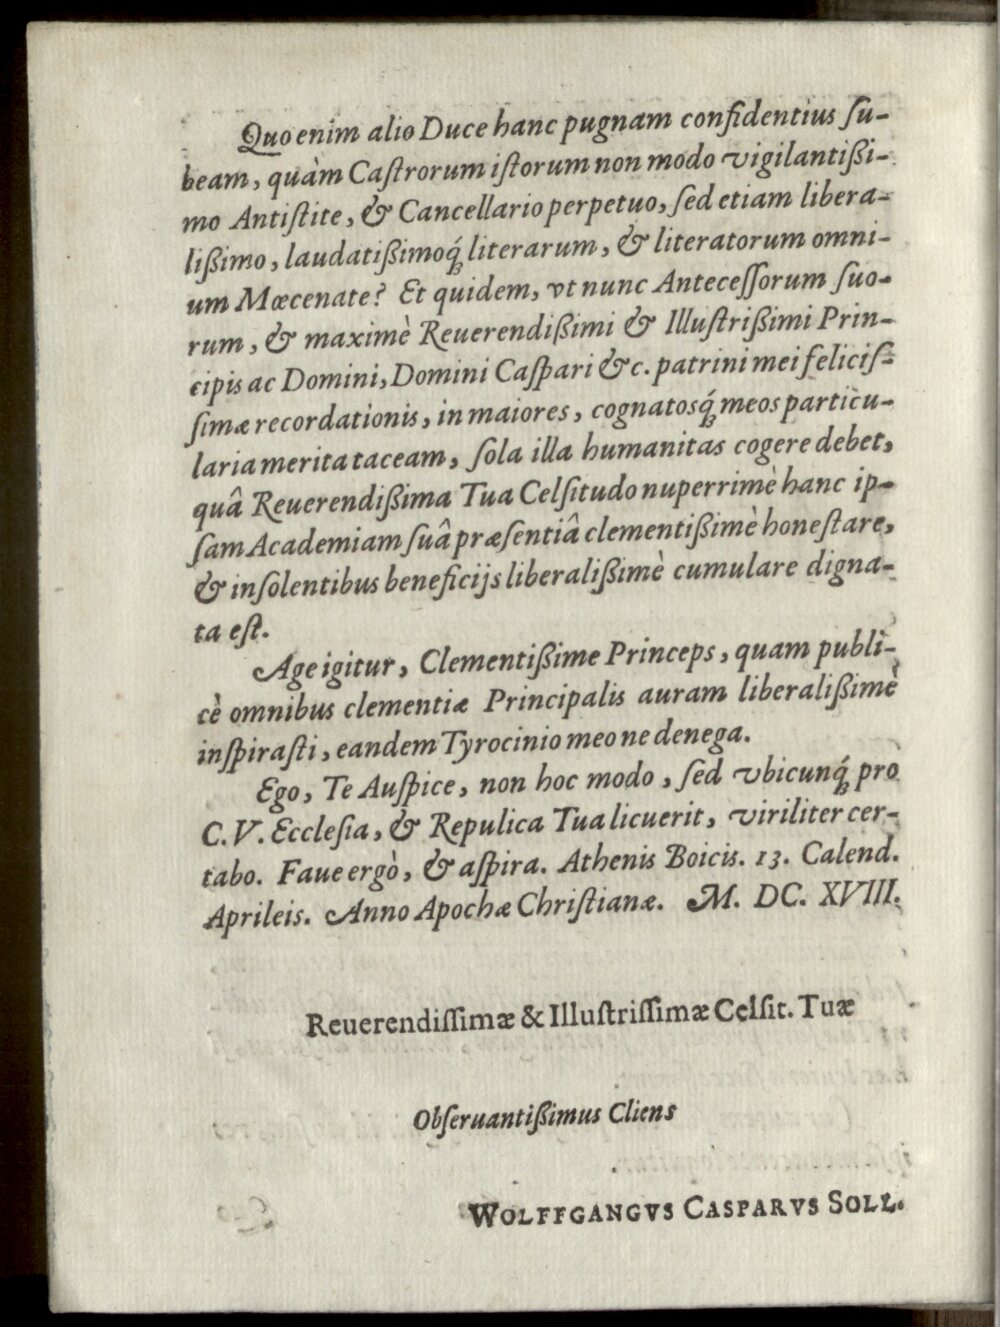 Quo enim alio Duce hanc pugnam confidentius ſu-
beam, quàm Caſtrorum iſtorum non modo vigilantißi-
mo Antiſtite, & Cancellario perpetuo, ſed etiam libera-
lißimo, laudatißimoq́ʒ literarum, & literatorum omni-
um Mœcenate? Et quidem, vt nunc Anteceſſorum ſuo-
rum, & maximè Reuerendißimi & Illuſtrißimi Prin-
cipis ac Domini, Domini Caſpari &c. patrini mei feliciſ-
ſimæ recordationis, in maiores, cognatosq́ʒ meos particu-
laria merita taceam, ſola illa humanitas cogere debet,
quâ Reuerendißima Tua Celſitudo nuperrimè hanc ip-
ſam Academiam ſuâ præſentiâ clementißimè honeſtare,
& inſolentibus beneficijs liberalißimè cumulare digna-
ta eſt.
Age igitur, Clementißime Princeps, quam publi-
cè omnibus clementiæ Principalis auram liberalißimè
inſpiraſti, eandem Tyrocinio meo ne denega.
Ego, Te Auſpice, non hoc modo, ſed vbicunq́ʒ pro
C. V. Eccleſia, & Repulica Tua licuerit, viriliter cer-
tabo. Faue ergò, & aſpira. Athenis Boicis. 13. Calend.
Aprileis. Anno Apochæ Chriſtianæ. M. DC. XVIII.
Reuerendiſſimæ & Illuſtriſſimæ Celſit. Tuæ
Obſeruantißimus Cliens
WOLFFGANGVS CASPARVS SOLL.